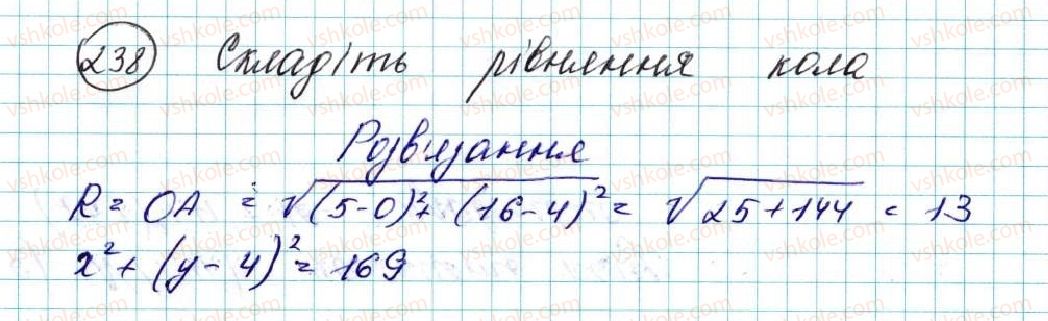 238 Складіть рівняння кола
Розв'язання
R = OA = √(5-0)²+ (16-4)² = √25+144 = 13
x²+ (y-4)² = 169